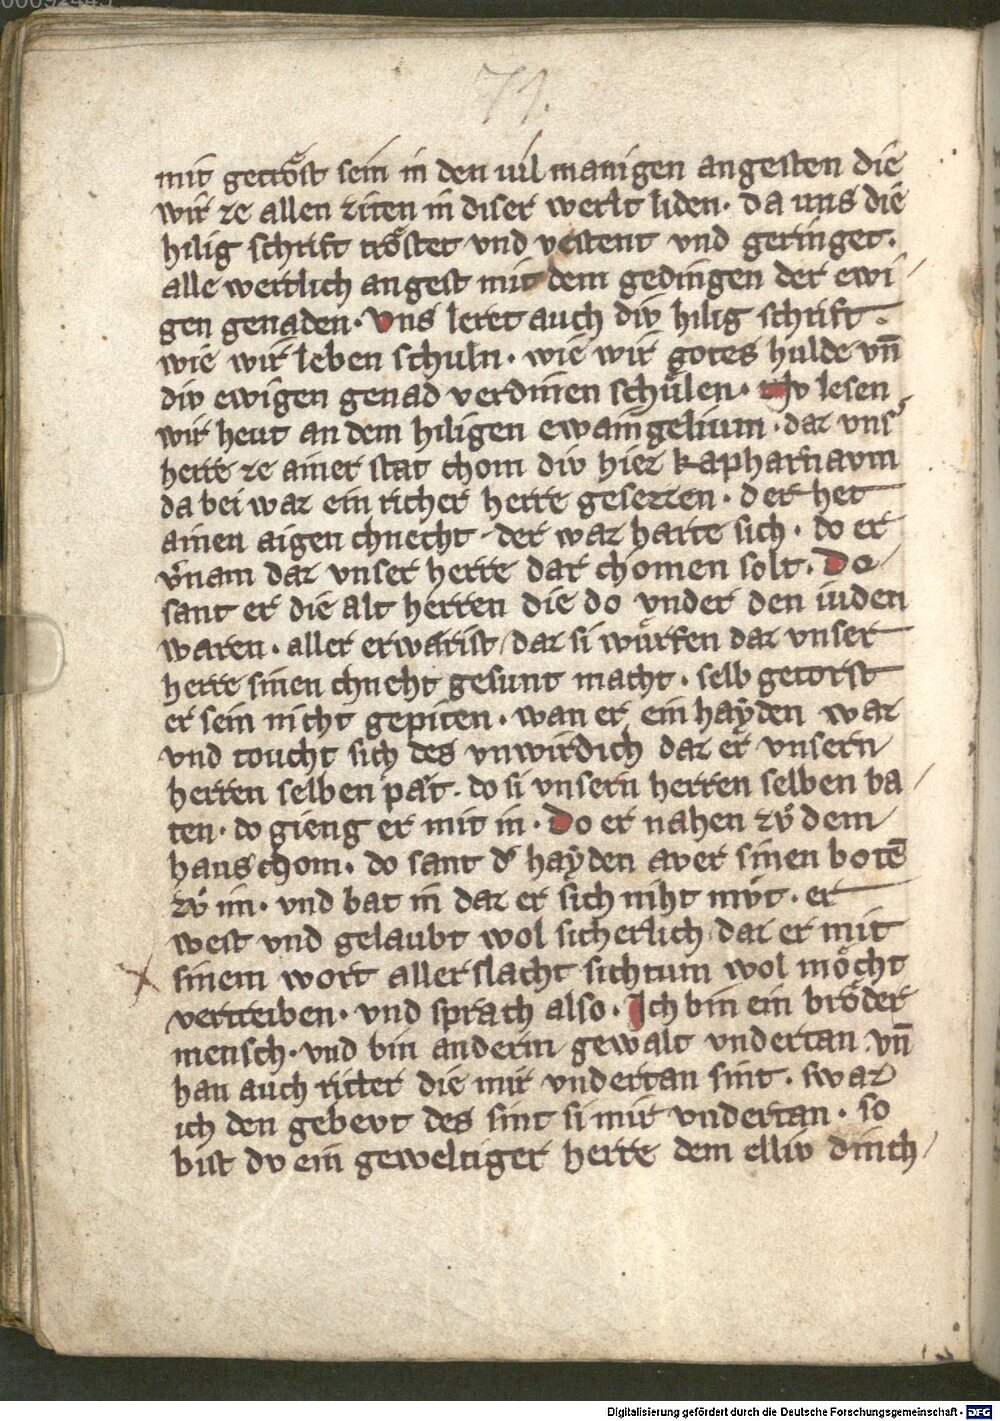 00092445
71.
mit getröst sein in den uil manigen angesten die
wir ze allen ziten in diser werlt liden · da uns die
hilig schrift tröstet vnd vestent vnd geringet ·
alle wertlich angest mit dem gedingen der ewi /
gen genaden · Vns leret auch div hilig schrift ·
wie wir leben schuln · wie wir gotes hulde vn̄
div ewigen genad verdinen schu̇len · Nv lesen
wir heut an dem hiligen ewaingelium · daz vnser
herre ze ainer stat chom div hiez kapharnavm
da bei waz ein richer herre gesezzen · der het
ainen aigen chnecht · der waz harte sich · do er
v͛nam daz vnser herre dar chomen solt · Do
sant er die alt herren die do vnder den iuden
waren · aller erwärist / daz si wu̇rfen daz vnser
herre sinen chneht gesunt macht · selb getorst
er sein nicht gepiten · wan er ein haẏden waz
vnd toucht sich des vnwirdich daz er vnsern
herren selben pät · do si vnsern herren selben ba /
ten · do gieng er mit in · Do er nahen zv̊ dem
haus chom · do sant d͛ haẏden aver sinen botē
zv̊ im · vnd bat in daz er sich niht mv̊t · er
west vnd gelaubt wol sicherlich daz er mit
sinem wort aller slacht sichtum wol möcht
vertreiben · vnd sprach also · Ich bin ein bröder
mensch · vnd bin anderm gewalt vndertan · vn̄
han auch ritter die mir vndertan sint · swaz
ich den gebevt des sint si mir vndertan · so
bist dv ein geweltiger herre dem elliv dinch /
Digitalisierung gefördert durch die Deutsche Forschungsgemeinschaft - DFG